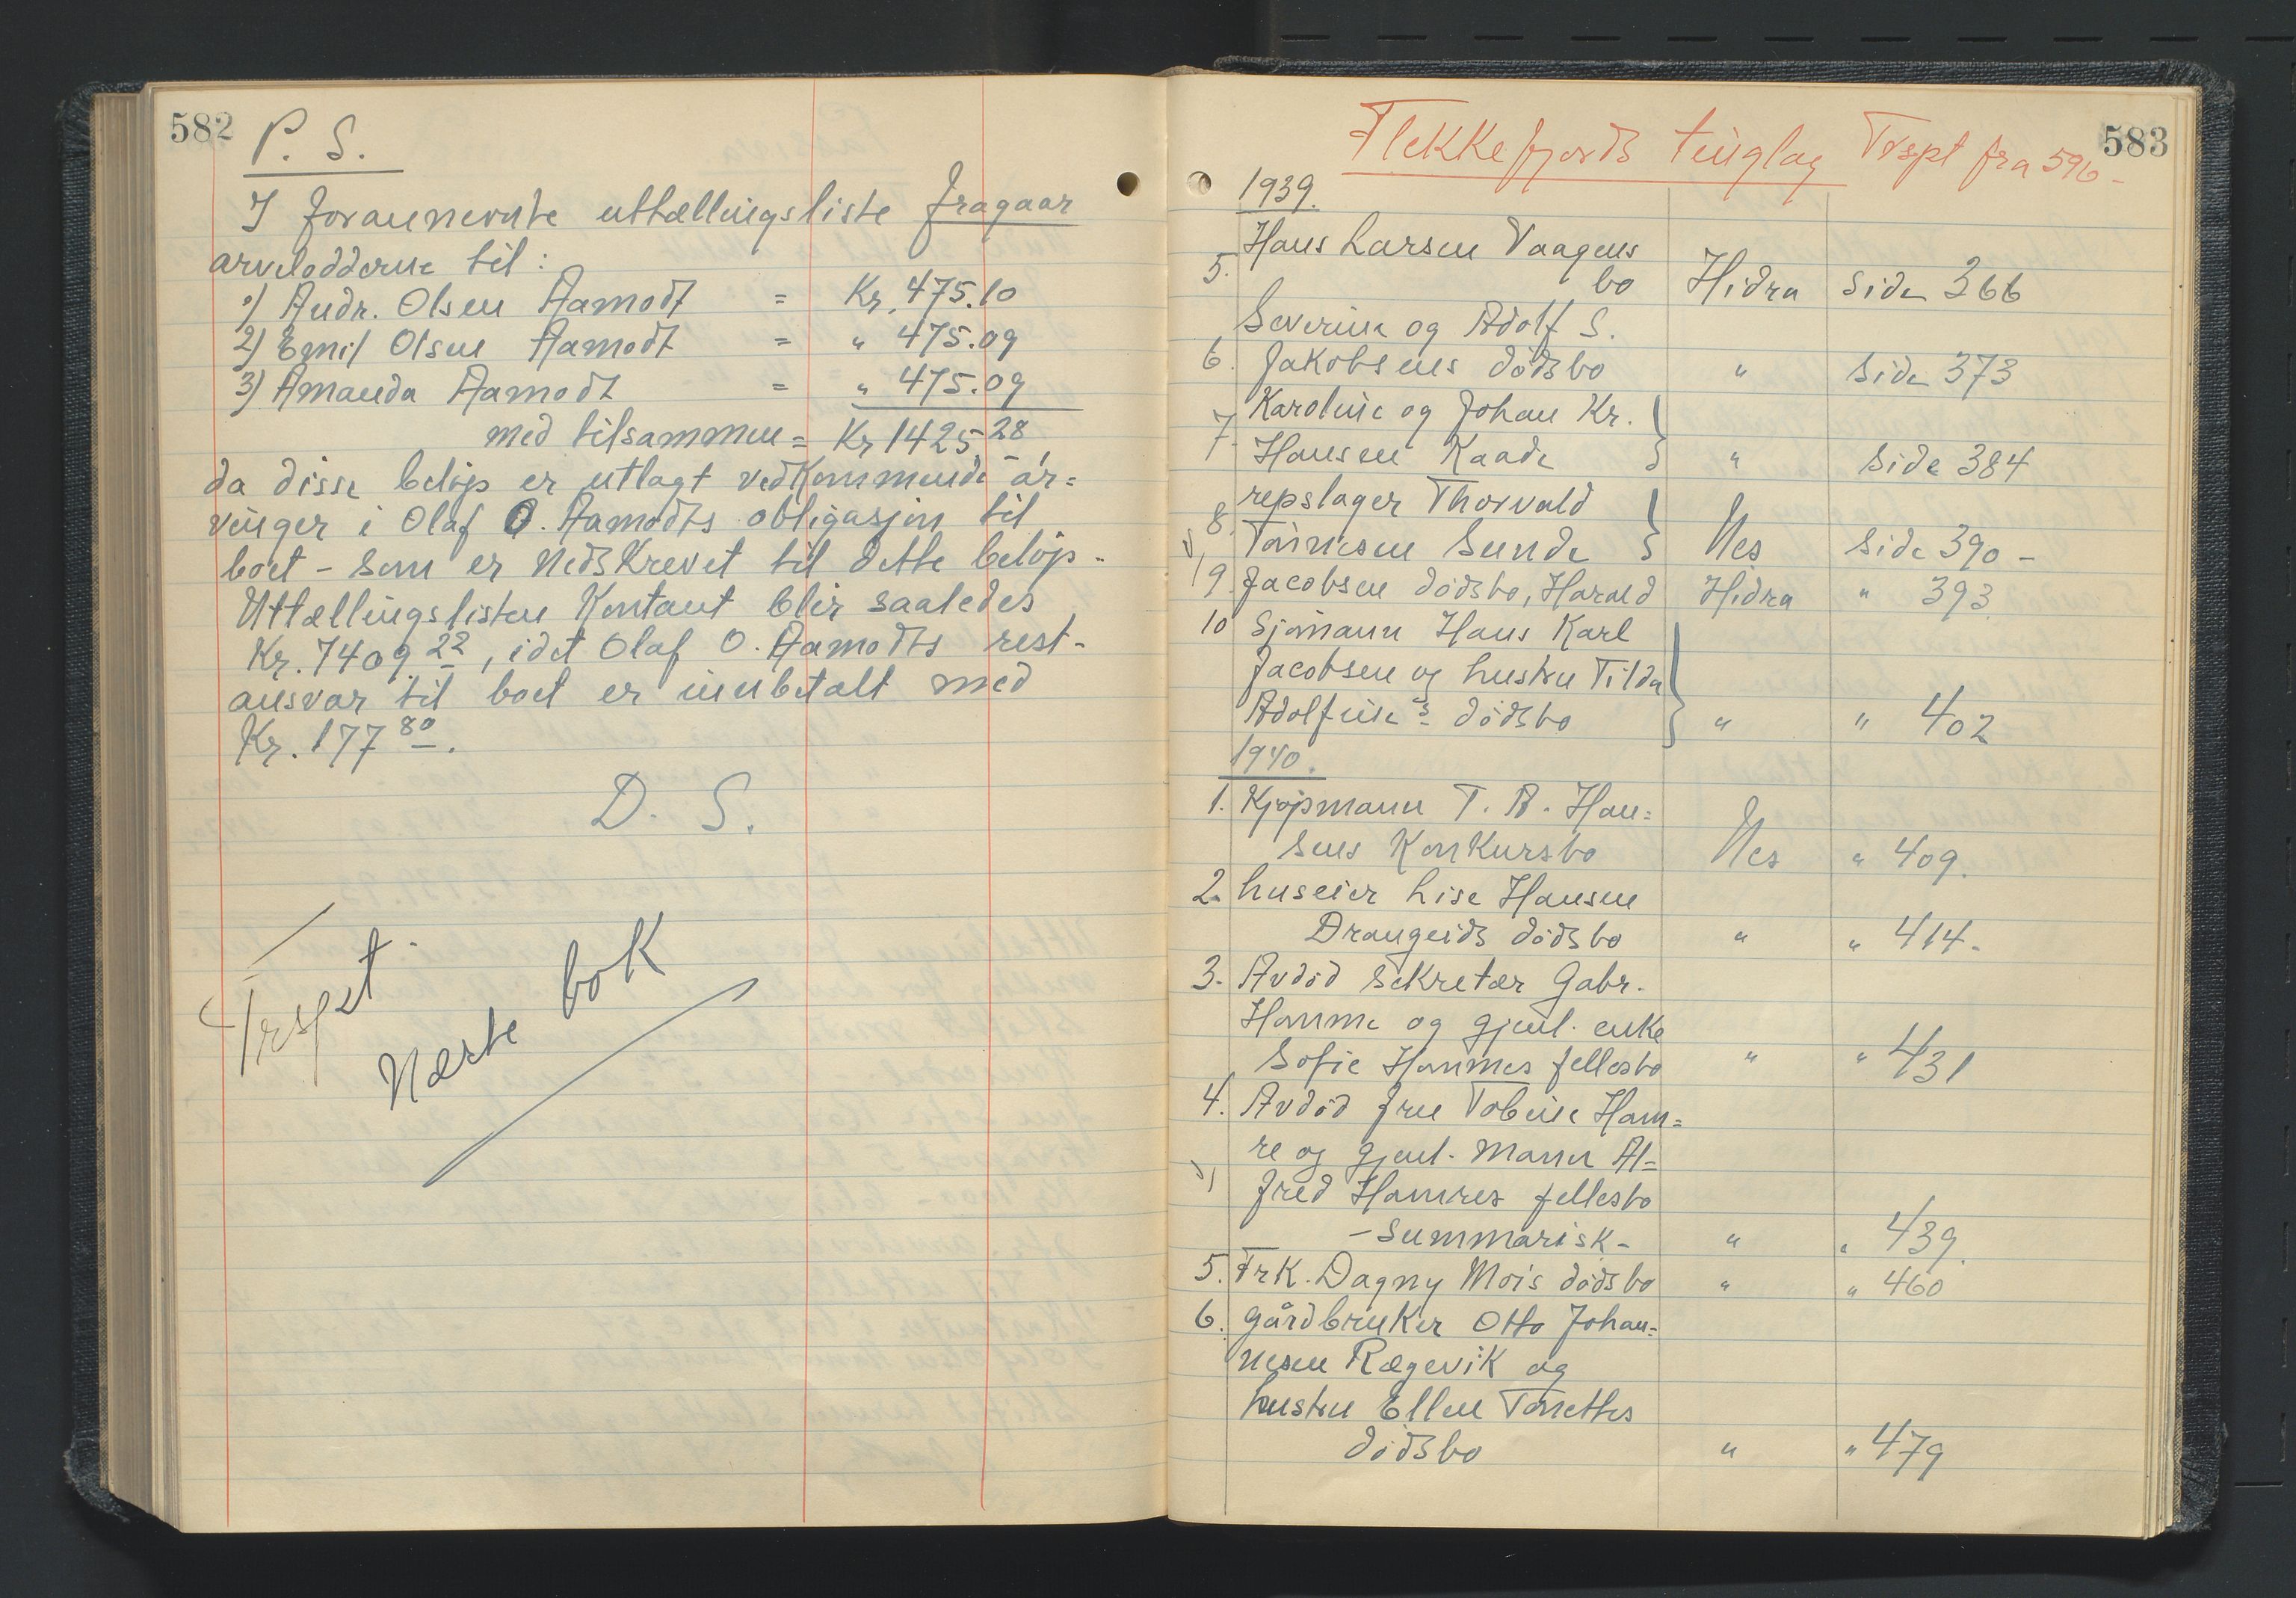 582
P. S.
I forannevnte uttællingsliste fragaar
arvelodderne til:
1) Andr. Olsen Aamodt = Kr. 475.10
2) Emil Olsen Aamodt = " 475.09
3) Amanda Aamodt = " 475.09
med tilsammen = Kr 1425.28
da disse beløp er utlagt vedkommende ar=
vinger i Olaf O. Aamodts obligasjon til
boet - som er nedskrevet til dette beløp -
Uttællingslisten kontant blir saaledes
Kr. 7409.22, idet Olaf O. Aamodts rest-
ansvar til boet er innbetalt med
Kr. 177 80.
D. S.
Trspt.
Næste bok
583
Flekkefjords tinglag Trspt fra 596-
1939.
Hans Larsen Vaagens
5. bo Hidra Side 366
Severine og Adolf S.
6. Jakobsens dødsbo " Side 373
Karoline og Johan Kr.
7. Hansen Kaade " Side 384
repslager Thorvald
8. Tønnesen Sunde Nes Side 390 -
9. Jacobsen dødsbo, Harald Hidra " 393
10 Sjømann Hans Karl
Jacobsen og hustru Tilda
Adolfine's dødsbo " " 402
1940.
1. Kjøpmann T. B. Han=
sens Konkursbo Nes " 409.
2. huseier Lise Hansen
Drangeids dødsbo " " 414.
3. Avdød sekretær Gabr.
Hamme og gjenl. enke
Sofie Hammes fellesbo " " 431
4. Avdød fru Tobine Ham=
re og gjenl. mann Al=
fred Hamres fellesbo
- summarisk - " " 439.
5. Frk. Dagny Moi's dødsbo " " 460
6. gårdbruker Otto Johan=
nesen Rægevik og
hustru Ellen Tonettes
dødsbo " " 479